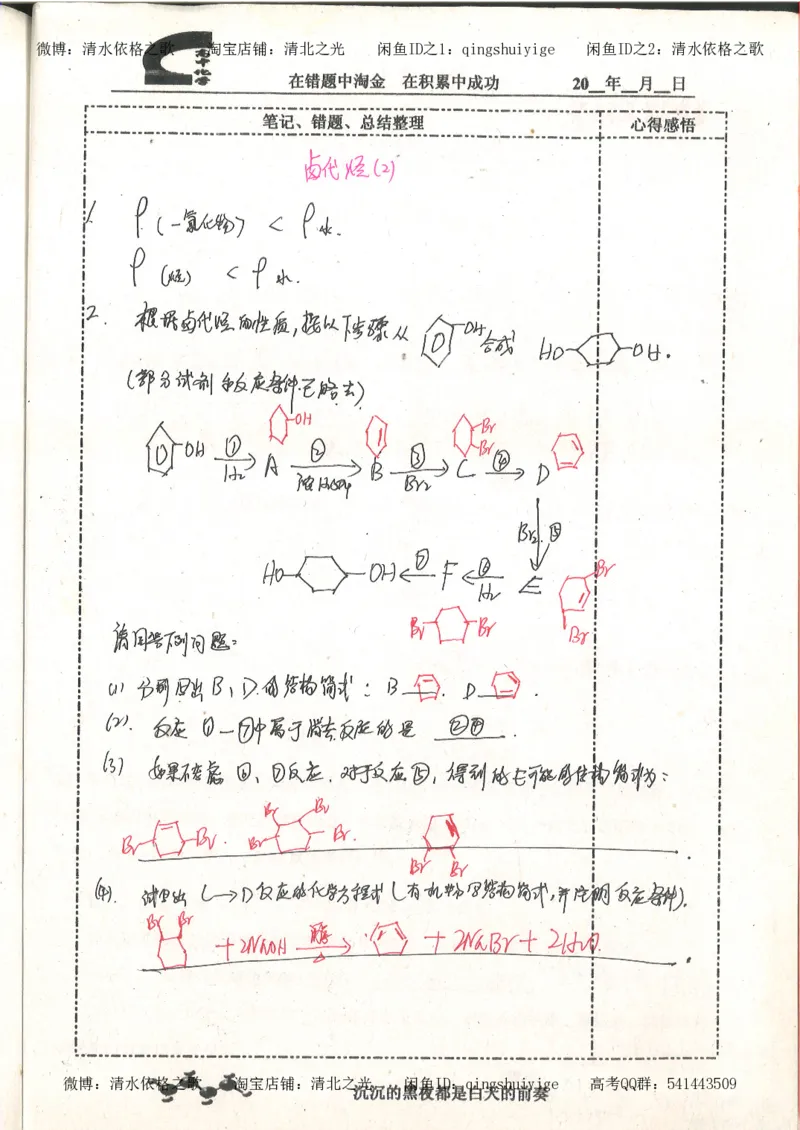 微博：清水依格之歌 淘宝店铺：清北之光 闲鱼ID之1：qingshuiyige 闲鱼ID之2：清水依格之歌
高中化学
在错题中淘金 在积累中成功 20__年__月__日
笔记、错题、总结整理 心得感悟
卤代烃(2)
1. ρ(一氯化物) < ρ水.
ρ(烃) < ρ水.
2. 根据卤代烃的性质,按以下步骤从 OH 合成 HO OH.
(部分试剂和反应条件已略去)
OH Br Br
OH ① H₂ A ② 浓H₂SO₄ B ③ Br₂ C ④ D
Br₂ ⑤
HO OH ⑦ F ⑥ H₂ E Br Br
Br Br
请回答下列问题:
(1) 分别写出B、D的结构简式: B . D .
(2). 反应①—⑦中属于消去反应的是 ②④ .
(3) 如果不考虑⑥、⑦反应.对于反应⑤,得到的E可能的结构简式为:
Br Br. Br Br Br Br. Br Br .
(4). 试写出C→D反应的化学方程式(有机物写结构简式,并注明反应条件).
Br Br + 2NaOH 醇 △ + 2NaBr + 2H₂O .
微博：清水依格之歌 淘宝店铺：清北之光 闲鱼ID：qingshuiyige 高考QQ群：541443509
沉沉的黑夜都是白天的前奏